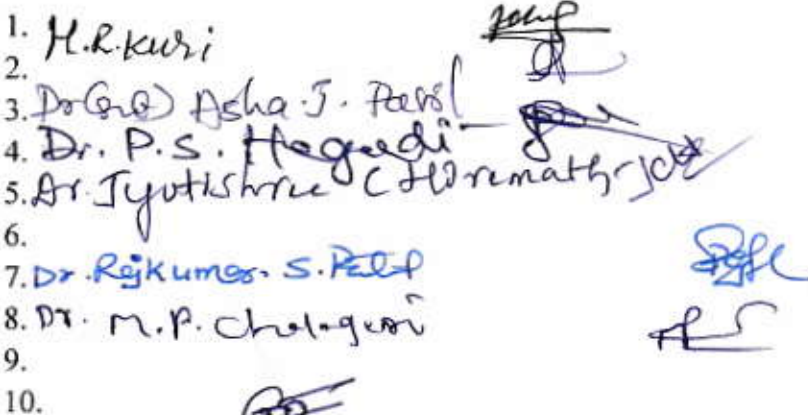 1. M.R.Kuri
2.
3. Dr(Smt) Asha.J. Patil
4. Dr. P.S. Hegadi
5. Dr. Jyotishree C Hiremath
6.
7. Dr. Rajkumar. S. Patil
8. Dr. M.P. Chalageri
9.
10.